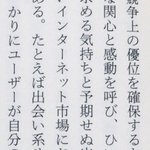 競争上の優位を確保する
な関心と感動を呼び、ひ
求める気持ちと予期せぬ
インターネット市場に
ある。たとえば出会い系
かりにユーザーが自分